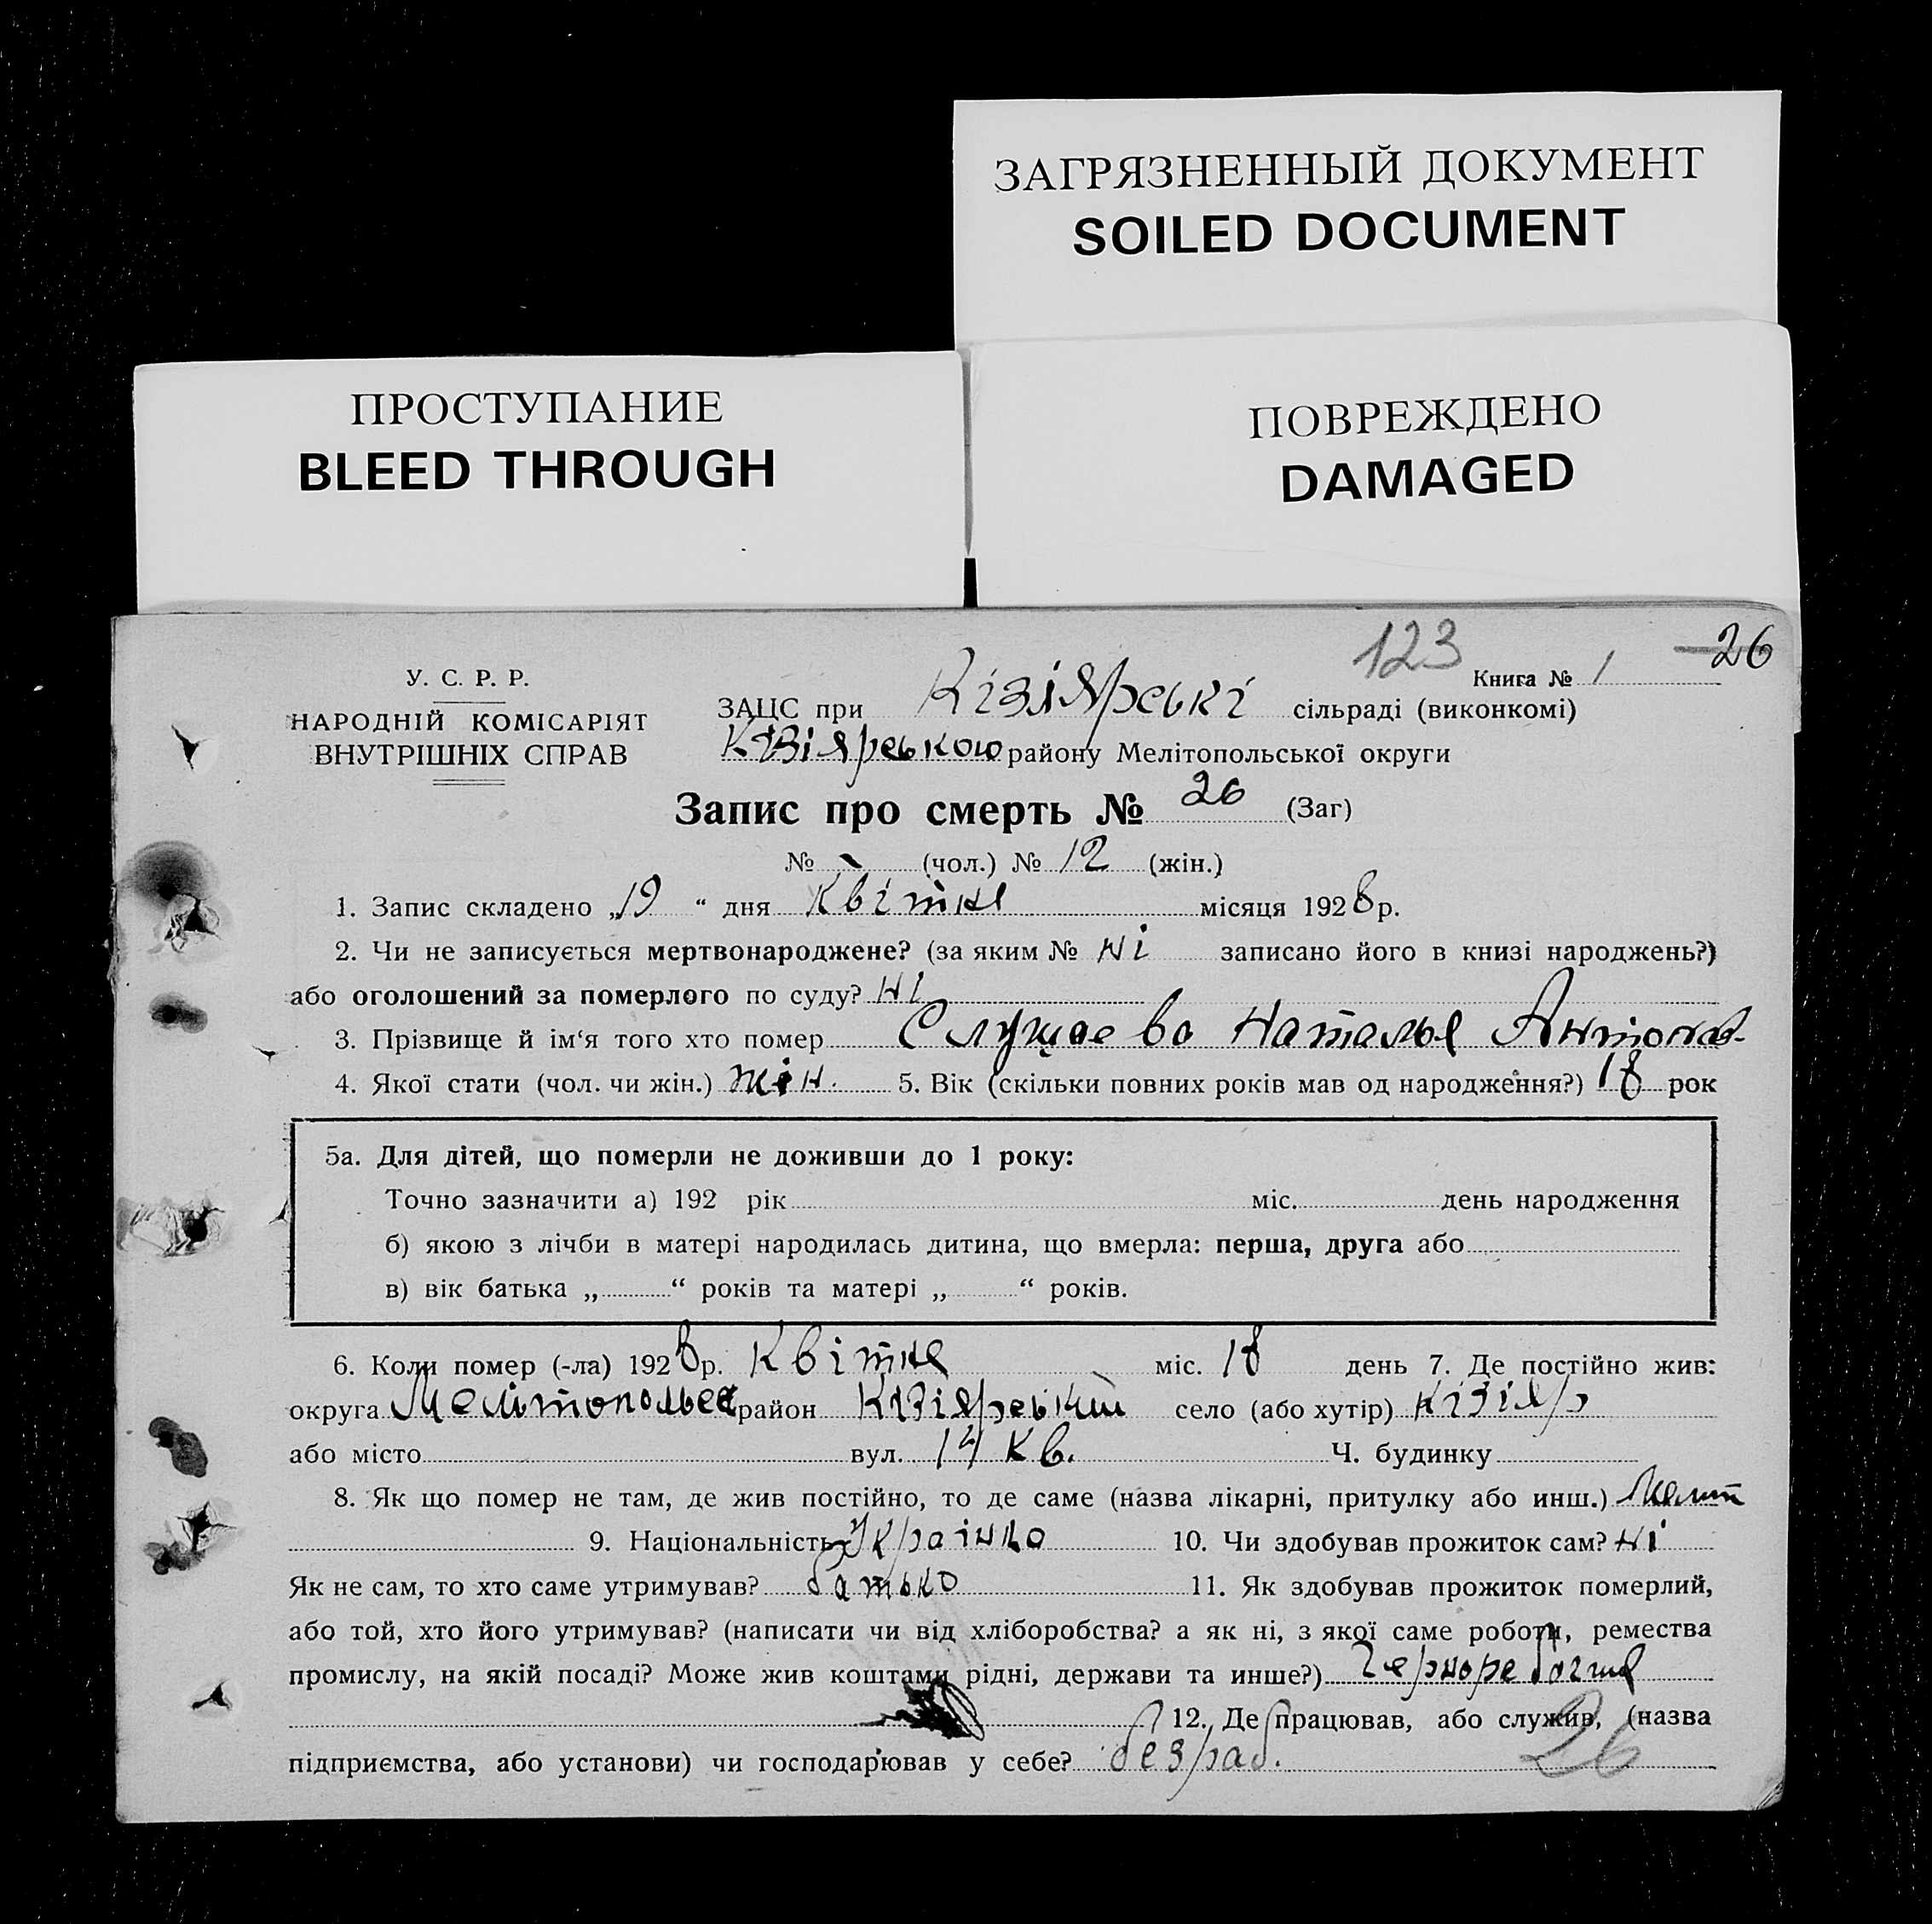 ЗАГРЯЗНЕННЫЙ ДОКУМЕНТ
SOILED DOCUMENT
ПРОСТУПАНИЕ
BLEED THROUGH
ПОВРЕЖДЕНО
DAMAGED
123
26
Книга № 1
У. С. Р. Р.
НАРОДНІЙ КОМІСАРІЯТ
ВНУТРІШНІХ СПРАВ
ЗАЦС при Кізіярські сільраді (виконкомі)
Кізіярською району Мелітопольської округи
Запис про смерть № 26 (Заг)
№ (чол.) № 12 (жін.)
1. Запис складено „19 “ дня Квітня місяця 1928 р.
2. Чи не записується мертвонароджене? (за яким № Ні записано його в книзі народжень?)
або оголошений за померлого по суду? Ні
3. Прізвище й ім‘я того хто помер Наталья Антонов-
4. Якої стати (чол. чи жін.) жін. 5. Вік (скільки повних років мав од народження?) 18 рок
5а. Для дітей, що померли не доживши до 1 року:
Точно зазначити а) 192 рік міс. день народження
б) якою з лічби в матері народилась дитина, що вмерла: перша, друга або
в) вік батька „ “ років та матері „ “ років.
6. Коли помер (-ла) 1928 р. Квітня міс. 18 день 7. Де постійно жив:
округа район Кізіярський село (або хутір) Кізіяр
або місто вул. 14 кв. Ч. будинку
8. Як що помер не там, де жив постійно, то де саме (назва лікарні, притулку або инш.) Меліт
9. Національність Українка 10. Чи здобував прожиток сам? Ні
Як не сам, то хто саме утримував? батько 11. Як здобував прожиток померлий,
або той, хто його утримував? (написати чи від хліборобства? а як ні, з якої саме роботи, ремества
промислу, на якій посаді? Може жив коштами рідні, держави та инше?)
12. Де працював, або служив, (назва
підприємства, або установи) чи господарював у себе? безраб.
26